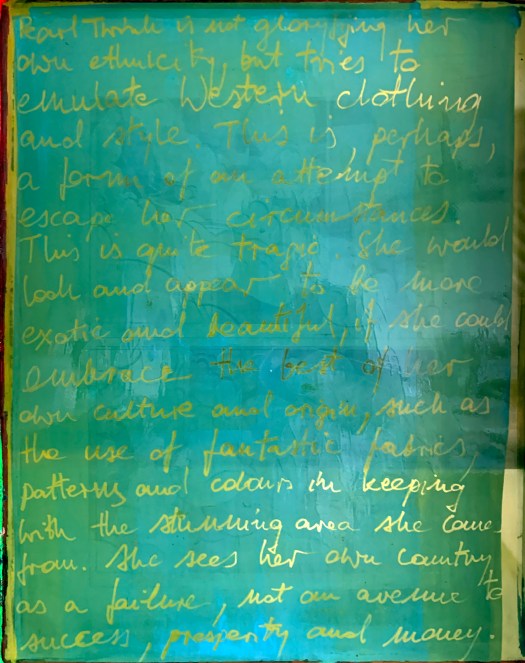 Pearl Thrish is not glorifying her
own ethnicity, but tries to
emulate Western clothing
and style. This is, perhaps,
a form of an attempt to
escape her circumstances.
This is quite tragic. She would
look and appear to be more
exotic and beautiful, if she could
embrace the best of her
own culture and origin, such as
the use of fantastic fabrics,
patterns and colours in keeping
with the stunning area she comes
from. She sees her own country
as a failure, not an avenue to
success, prosperity and money.